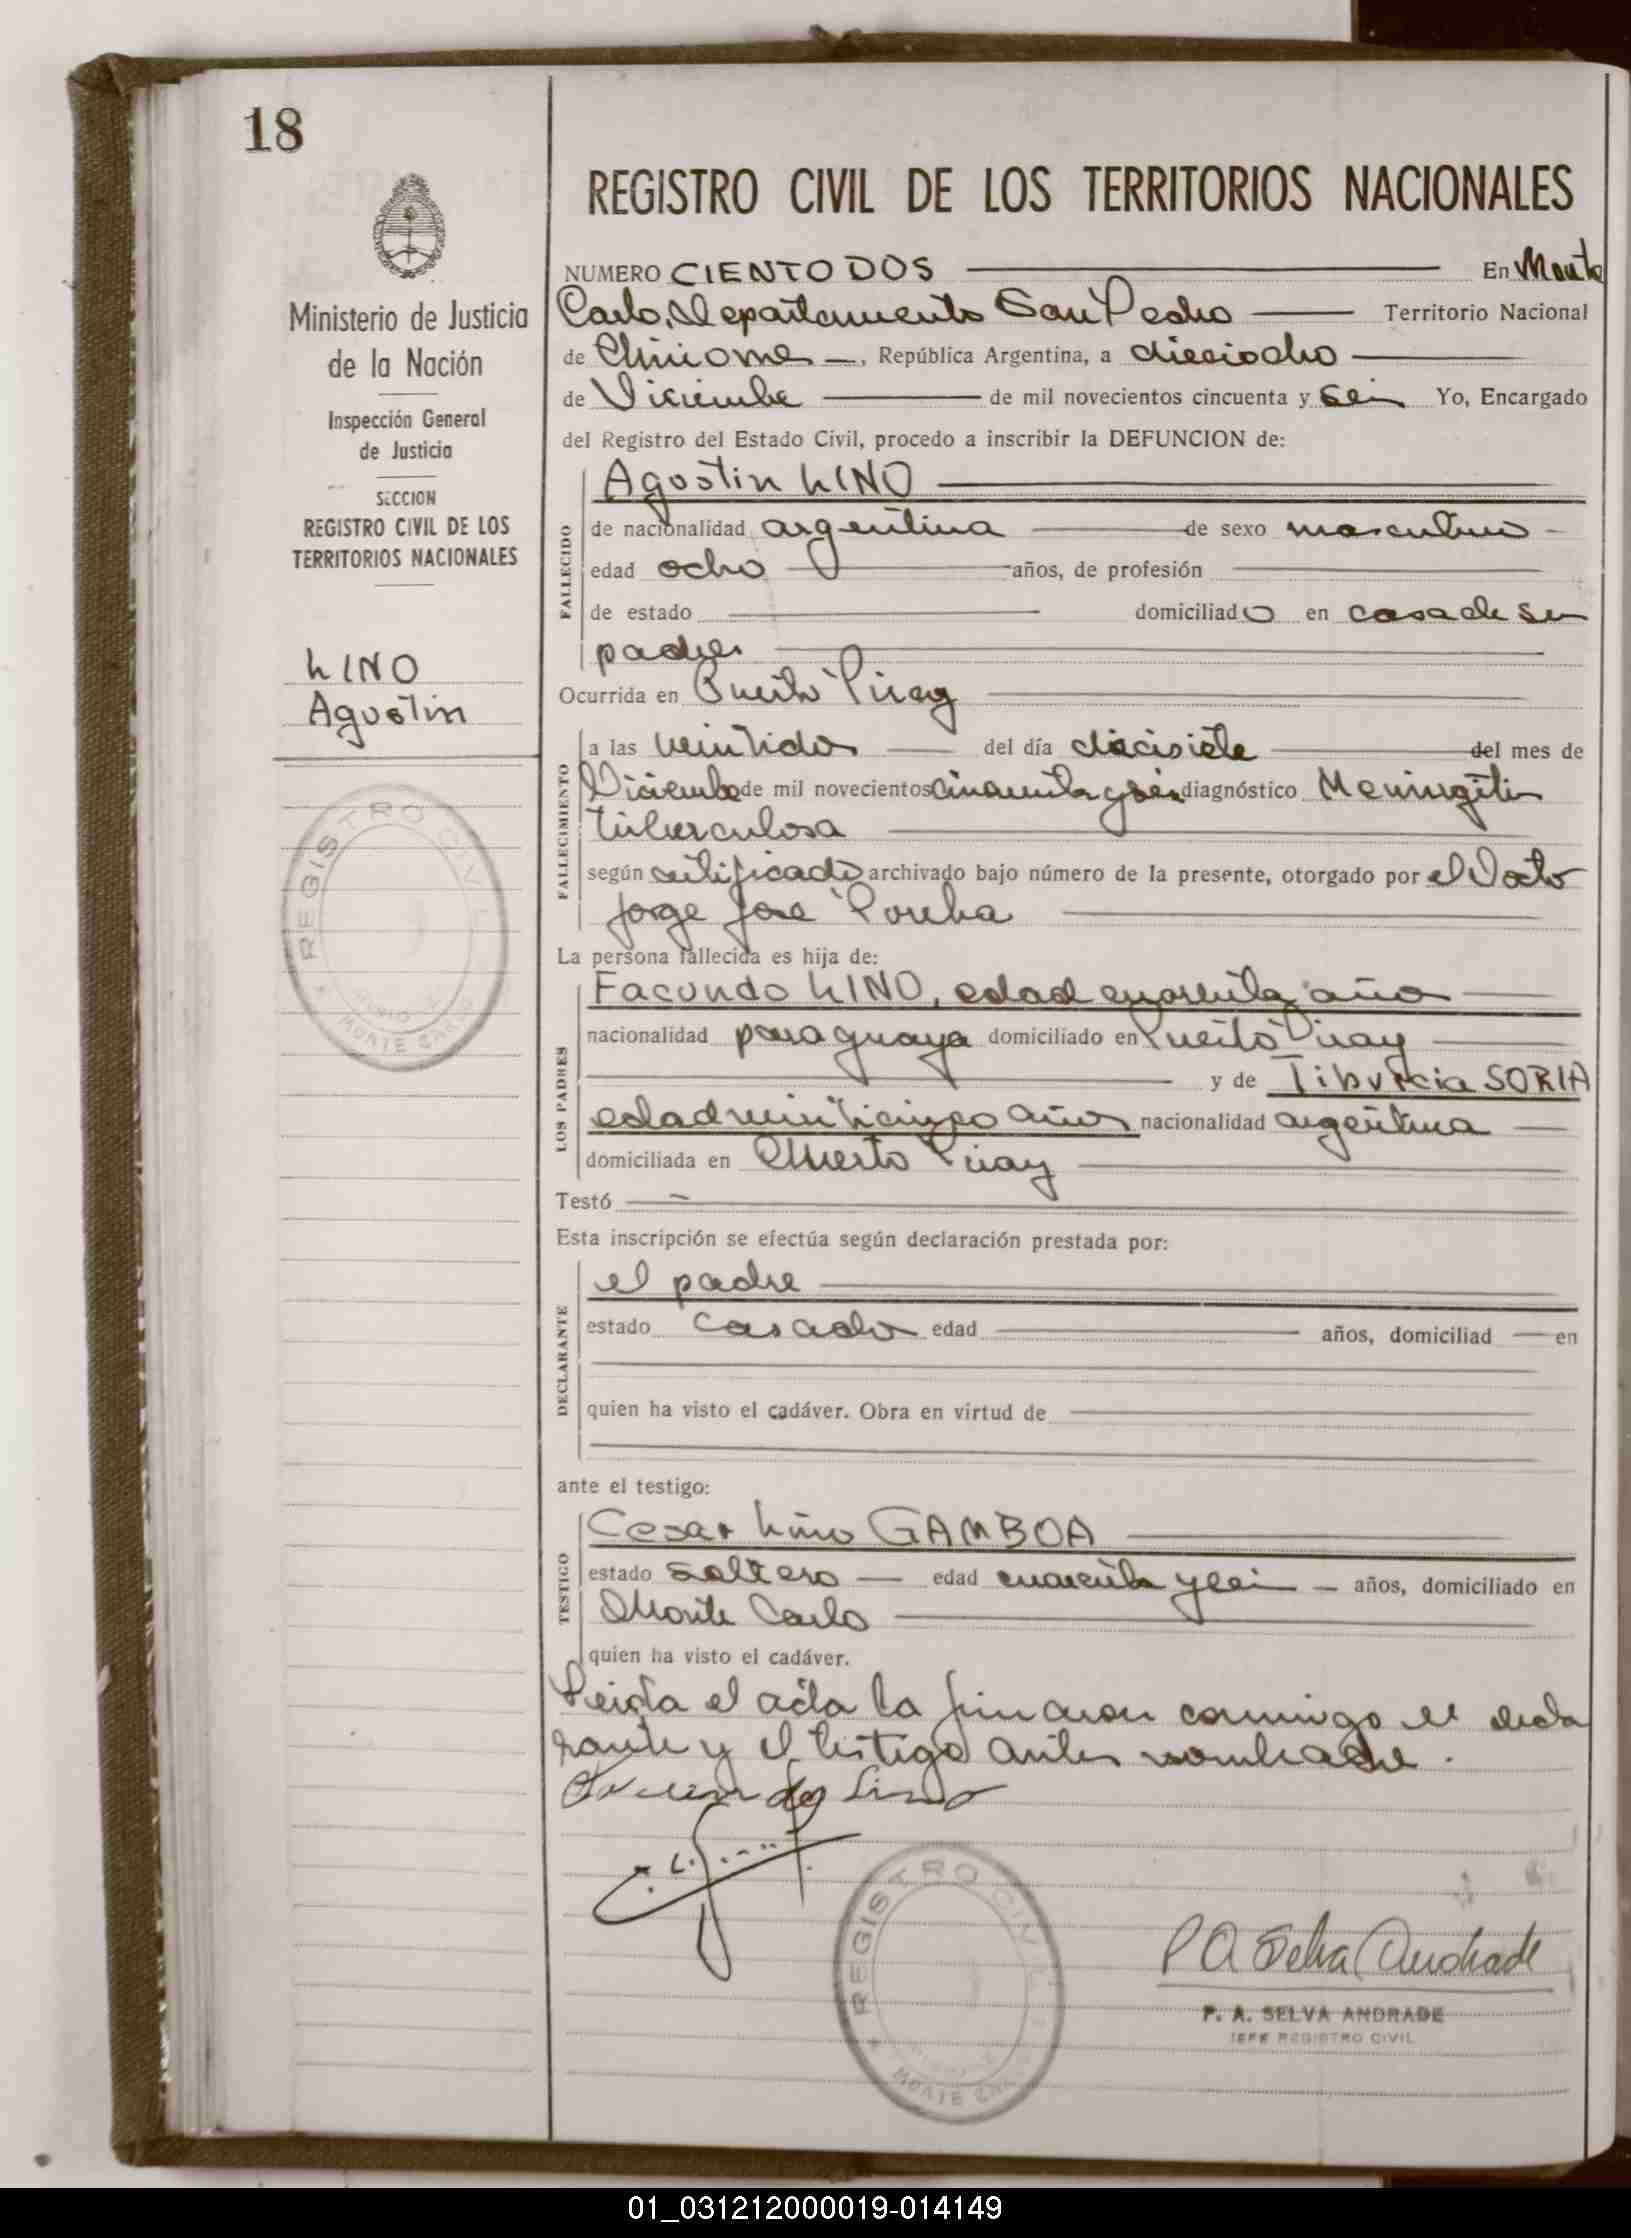 18
REGISTRO CIVIL DE LOS TERRITORIOS NACIONALES
Ministerio de Justicia
de la Nación
Inspección General
de Justicia
SECCION
REGISTRO CIVIL DE LOS
TERRITORIOS NACIONALES
LINO
Agustin
REGISTRO CIVIL
MONTE CARLO
NUMERO CIENTO DOS En Monte
Carlo, Departamento San Pedro Territorio Nacional
de Misiones, República Argentina, a dieciocho
de Diciembre de mil novecientos cincuenta y seis Yo, Encargado
del Registro del Estado Civil, procedo a inscribir la DEFUNCION de:
FALLECIDO
Agustin LINO
de nacionalidad argentina de sexo masculino
edad ocho años, de profesión
de estado domiciliado en casa de sus
padres
Ocurrida en Puerto Piray
FALLECIMIENTO
a las veintidos del día diecisiete del mes de
Diciembre de mil novecientos cincuenta y seis diagnóstico Meningitis
tuberculosa
según certificado archivado bajo número de la presente, otorgado por el Doctor
Jorge José
La persona fallecida es hija de:
LOS PADRES
Facundo LINO, edad cuarenta años
nacionalidad paraguaya domiciliado en Puerto Piray
y de Tiburcia SORIA
edad veinticinco años nacionalidad argentina
domiciliada en Puerto Piray
Testó
Esta inscripción se efectúa según declaración prestada por:
DECLARANTE
el padre
estado casado edad años, domiciliad en
quien ha visto el cadáver. Obra en virtud de
ante el testigo:
TESTIGO
Cesar Lino GAMBOA
estado soltero edad cuarenta y seis años, domiciliado en
Monte Carlo
quien ha visto el cadáver.
Leida el acta la firmaron conmigo el decla
rante y el testigo antes nombrado.
Facundo Lino
REGISTRO CIVIL
MONTE CARLO
P A Selva Andrade
P. A. SELVA ANDRADE
JEFE REGISTRO CIVIL
01_031212000019-014149